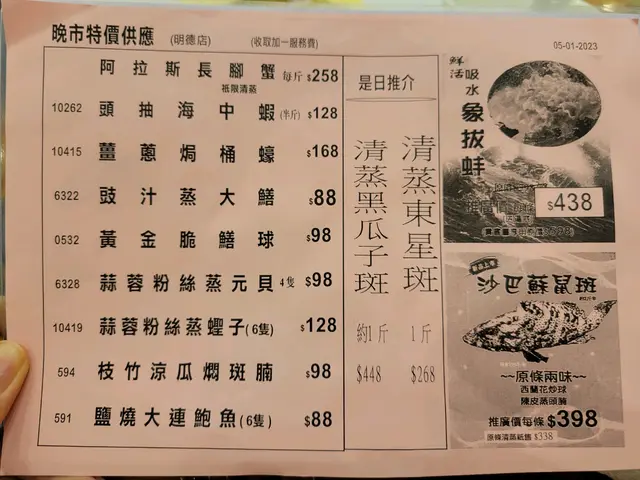 晚市特價供應 (明德店) (收取加一服務費) 05-01-2023
阿拉斯長腳蟹 每斤 $258
祗限清蒸
10262 頭抽海中蝦 (半斤) $128
10415 薑蔥焗桶蠔 $168
6322 豉汁蒸大鱔 $88
0532 黃金脆鱔球 $98
6328 蒜蓉粉絲蒸元貝 4隻 $98
10419 蒜蓉粉絲蒸蟶子 (6隻) $128
594 枝竹涼瓜燜斑腩 $98
591 鹽燒大連鮑魚 (6隻) $88
是日推介
清蒸東星斑
1斤
$268
清蒸黑瓜子斑
約1斤
$448
鮮活
吸水象拔蚌
$438
沙巴蘇鼠斑
~~原條兩味~~
西蘭花炒球
陳皮蒸頭腩
推廣價每條 $398
原條清蒸祗售 $338